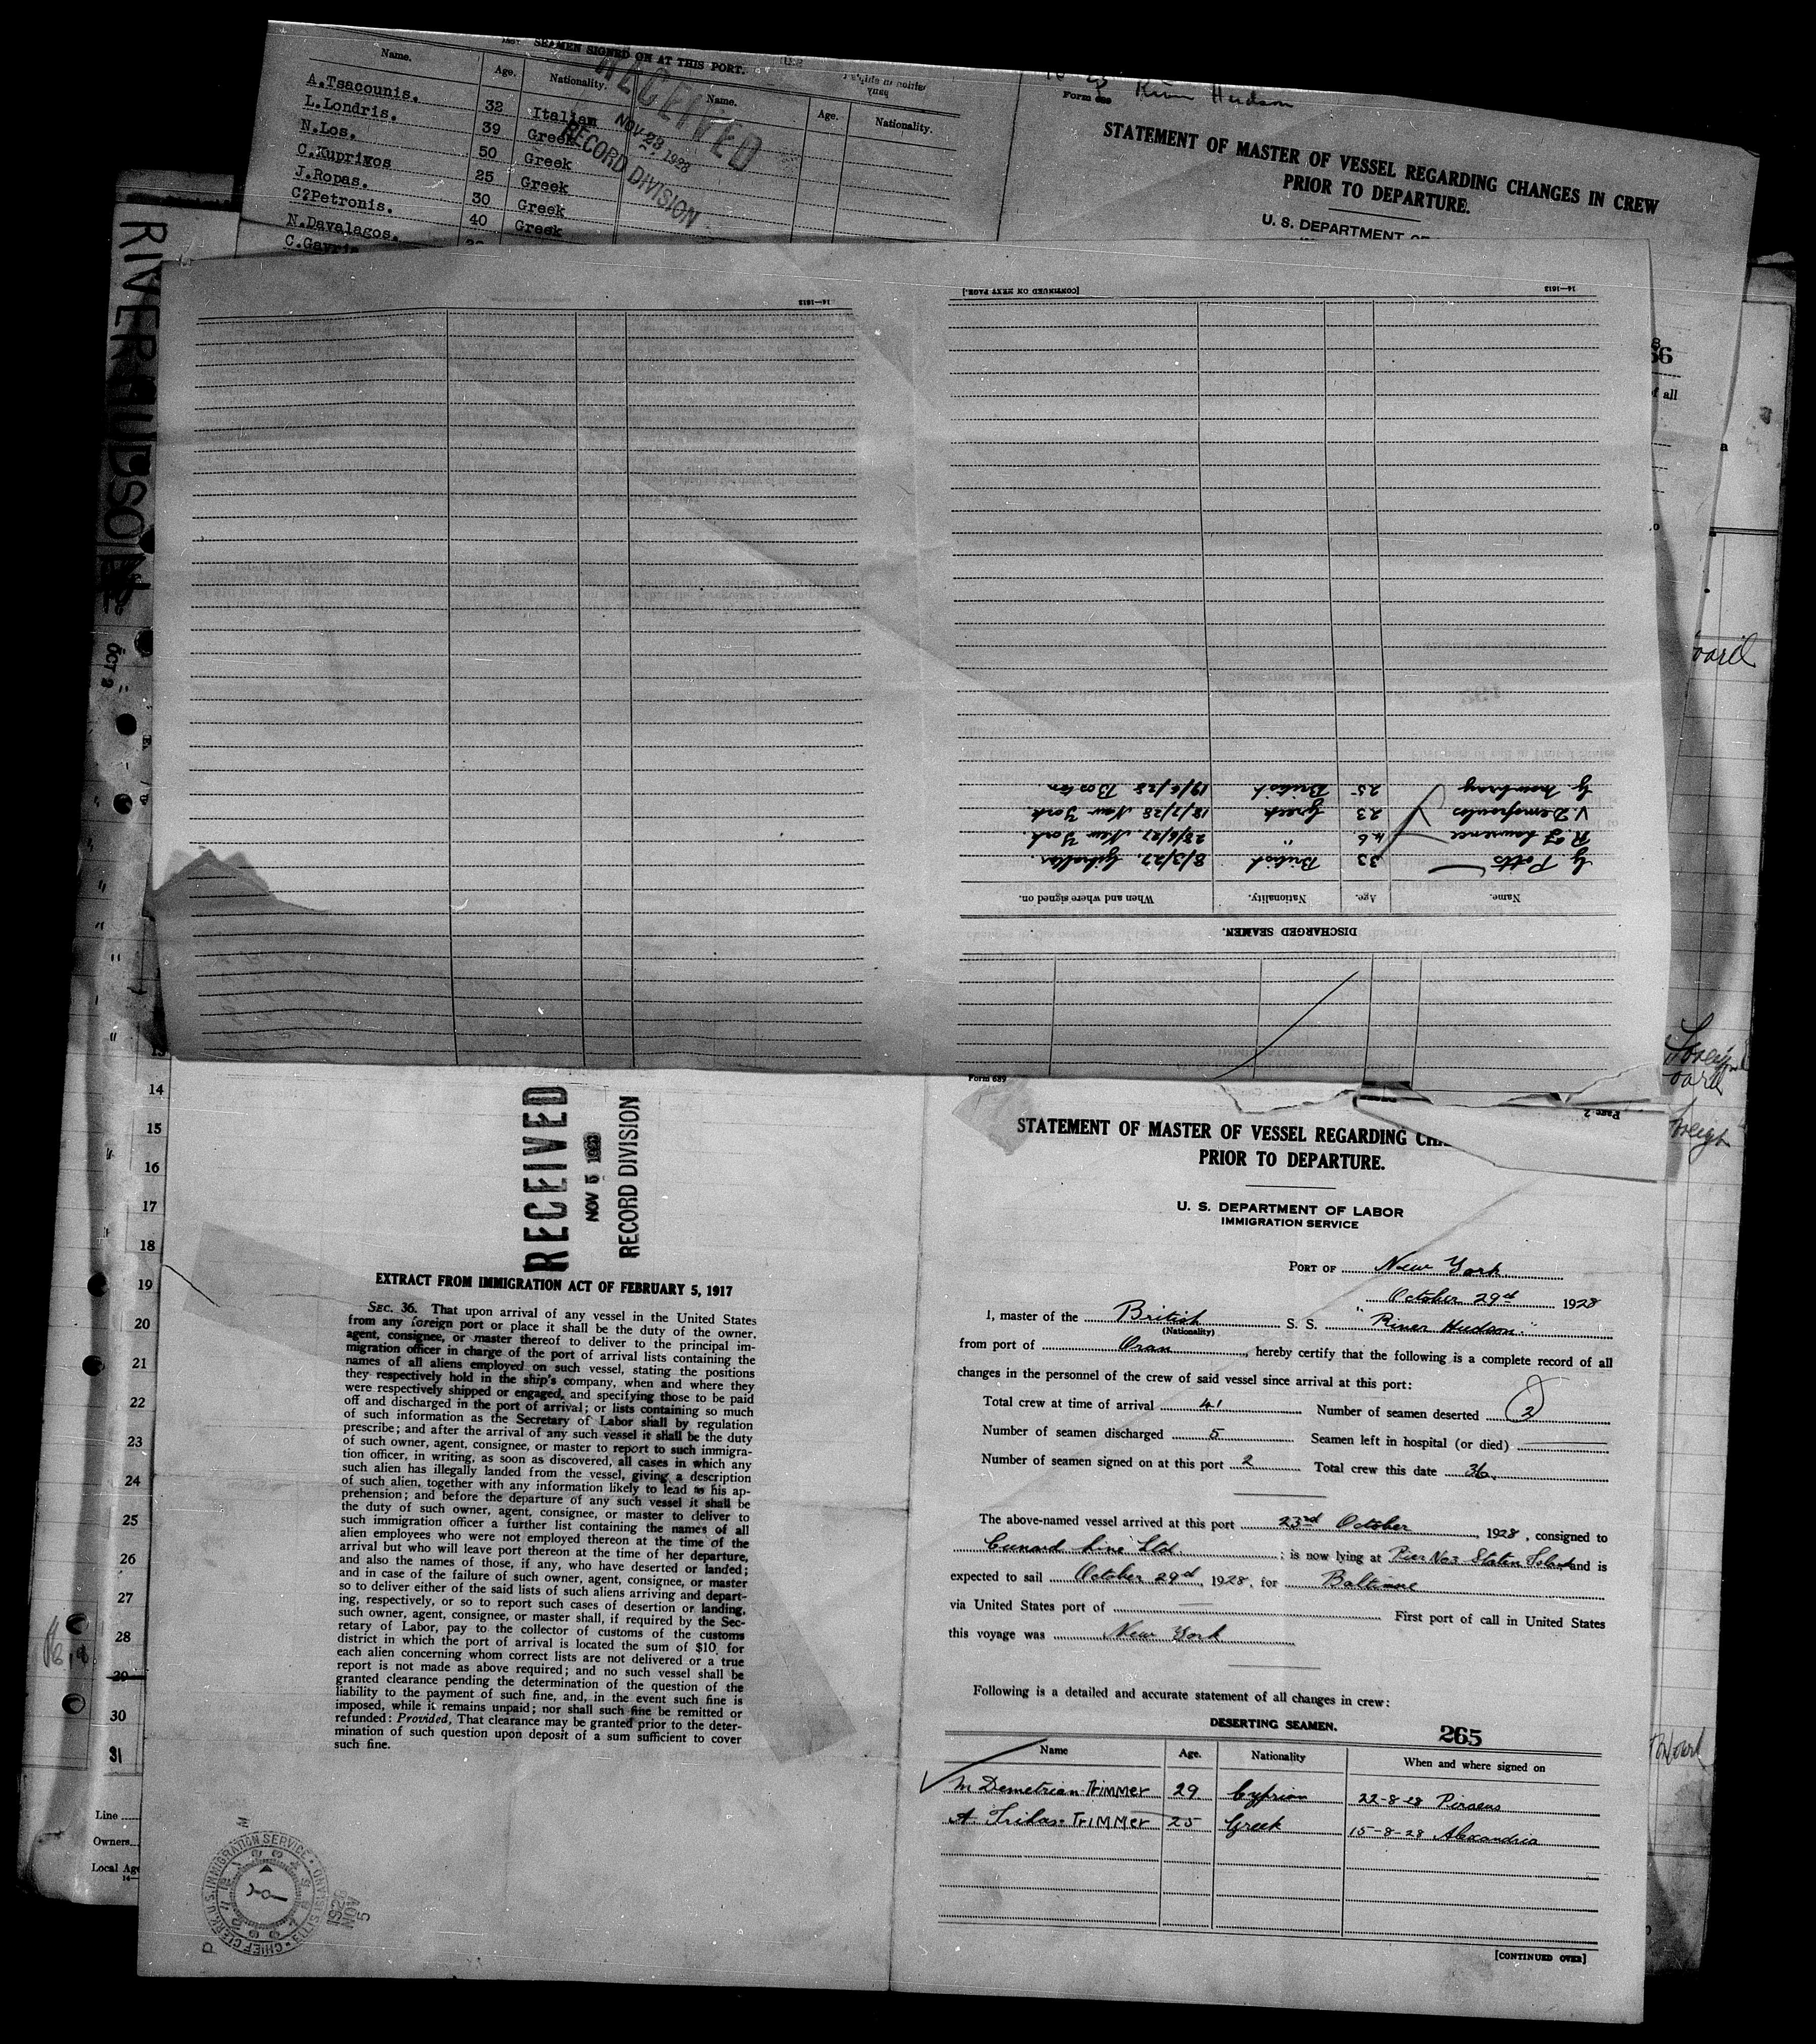 SEAMEN SIGNED ON AT THIS PORT.
Name. Age. Nationality. Name. Age. Nationality.
A.Tsacounis. 32 Italian
L.Londris. 39 Greek
N.Los. 50 Greek
C.Kupriwos 25 Greek
J.Ropas. 30 Greek
C?Petronis. 40 Greek
N.Davalagos.
C.Gavri
RECEIVED
NOV 23 1928
RECORD DIVISION
River Hudson
Form 689
STATEMENT OF MASTER OF VESSEL REGARDING CHANGES IN CREW
PRIOR TO DEPARTURE.
U. S. DEPARTMENT OF
RIVER HUDSON
OCT 2
66
of all
oard
Foreign
oard
Foreign
[CONTINUED ON NEXT PAGE.]
14—1613
14—1613
Page 2
DISCHARGED SEAMEN.
Name. Age. Nationality. When and where signed on.
G. Potts 33 British 8/3/27. Gibraltar.
R. J. Lawrence 46 " 28/6/27. New York.
V. Demopoulos 23 Greek 18/2/28 New York.
G. Newbray 25 British 19/6/28 Boston
13
14
15
16
17
18
19
20
21
22
23
24
25
26
27
28
29
30
31
Line
Owners
Local Ag
RECEIVED
NOV 5 1928
RECORD DIVISION
EXTRACT FROM IMMIGRATION ACT OF FEBRUARY 5, 1917
SEC. 36. That upon arrival of any vessel in the United States
from any foreign port or place it shall be the duty of the owner,
agent, consignee, or master thereof to deliver to the principal im-
migration officer in charge of the port of arrival lists containing the
names of all aliens employed on such vessel, stating the positions
they respectively hold in the ship's company, when and where they
were respectively shipped or engaged, and specifying those to be paid
off and discharged in the port of arrival; or lists containing so much
of such information as the Secretary of Labor shall by regulation
prescribe; and after the arrival of any such vessel it shall be the duty
of such owner, agent, consignee, or master to report to such immigra-
tion officer, in writing, as soon as discovered, all cases in which any
such alien has illegally landed from the vessel, giving a description
of such alien, together with any information likely to lead to his ap-
prehension; and before the departure of any such vessel it shall be
the duty of such owner, agent, consignee, or master to deliver to
such immigration officer a further list containing the names of all
alien employees who were not employed thereon at the time of the
arrival but who will leave port thereon at the time of her departure,
and also the names of those, if any, who have deserted or landed;
and in case of the failure of such owner, agent, consignee, or master
so to deliver either of the said lists of such aliens arriving and depart-
ing, respectively, or so to report such cases of desertion or landing,
such owner, agent, consignee, or master shall, if required by the Sec-
retary of Labor, pay to the collector of customs of the customs
district in which the port of arrival is located the sum of $10 for
each alien concerning whom correct lists are not delivered or a true
report is not made as above required; and no such vessel shall be
granted clearance pending the determination of the question of the
liability to the payment of such fine, and, in the event such fine is
imposed, while it remains unpaid; nor shall such fine be remitted or
refunded: Provided, That clearance may be granted prior to the deter-
mination of such question upon deposit of a sum sufficient to cover
such fine.
CHIEF CLERK U.S. IMMIGRATION SERVICE
ELLIS ISLAND
1928
NOV
5
Form 689
STATEMENT OF MASTER OF VESSEL REGARDING CHA
PRIOR TO DEPARTURE.
U. S. DEPARTMENT OF LABOR
IMMIGRATION SERVICE
PORT OF New York.
October 29th 1928
I, master of the British S. S. "River Hudson."
(Nationality)
from port of Oran, hereby certify that the following is a complete record of all
changes in the personnel of the crew of said vessel since arrival at this port:
Total crew at time of arrival 41 Number of seamen deserted 2
Number of seamen discharged 5 Seamen left in hospital (or died)
Number of seamen signed on at this port 2 Total crew this date 36.
The above-named vessel arrived at this port 23rd October, 1928, consigned to
Cunard Line Ltd.; is now lying at Pier No 3 Staten Island, and is
expected to sail October 29th, 1928, for Baltimore
via United States port of — First port of call in United States
this voyage was New York
Following is a detailed and accurate statement of all changes in crew:
DESERTING SEAMEN. 265
Name Age. Nationality When and where signed on
M Demetrian Trimmer 29 Cyprian 22-8-28 Piraeus
A. Trikas Trimmer 25 Greek 15-8-28 Alexandria
[CONTINUED OVER]